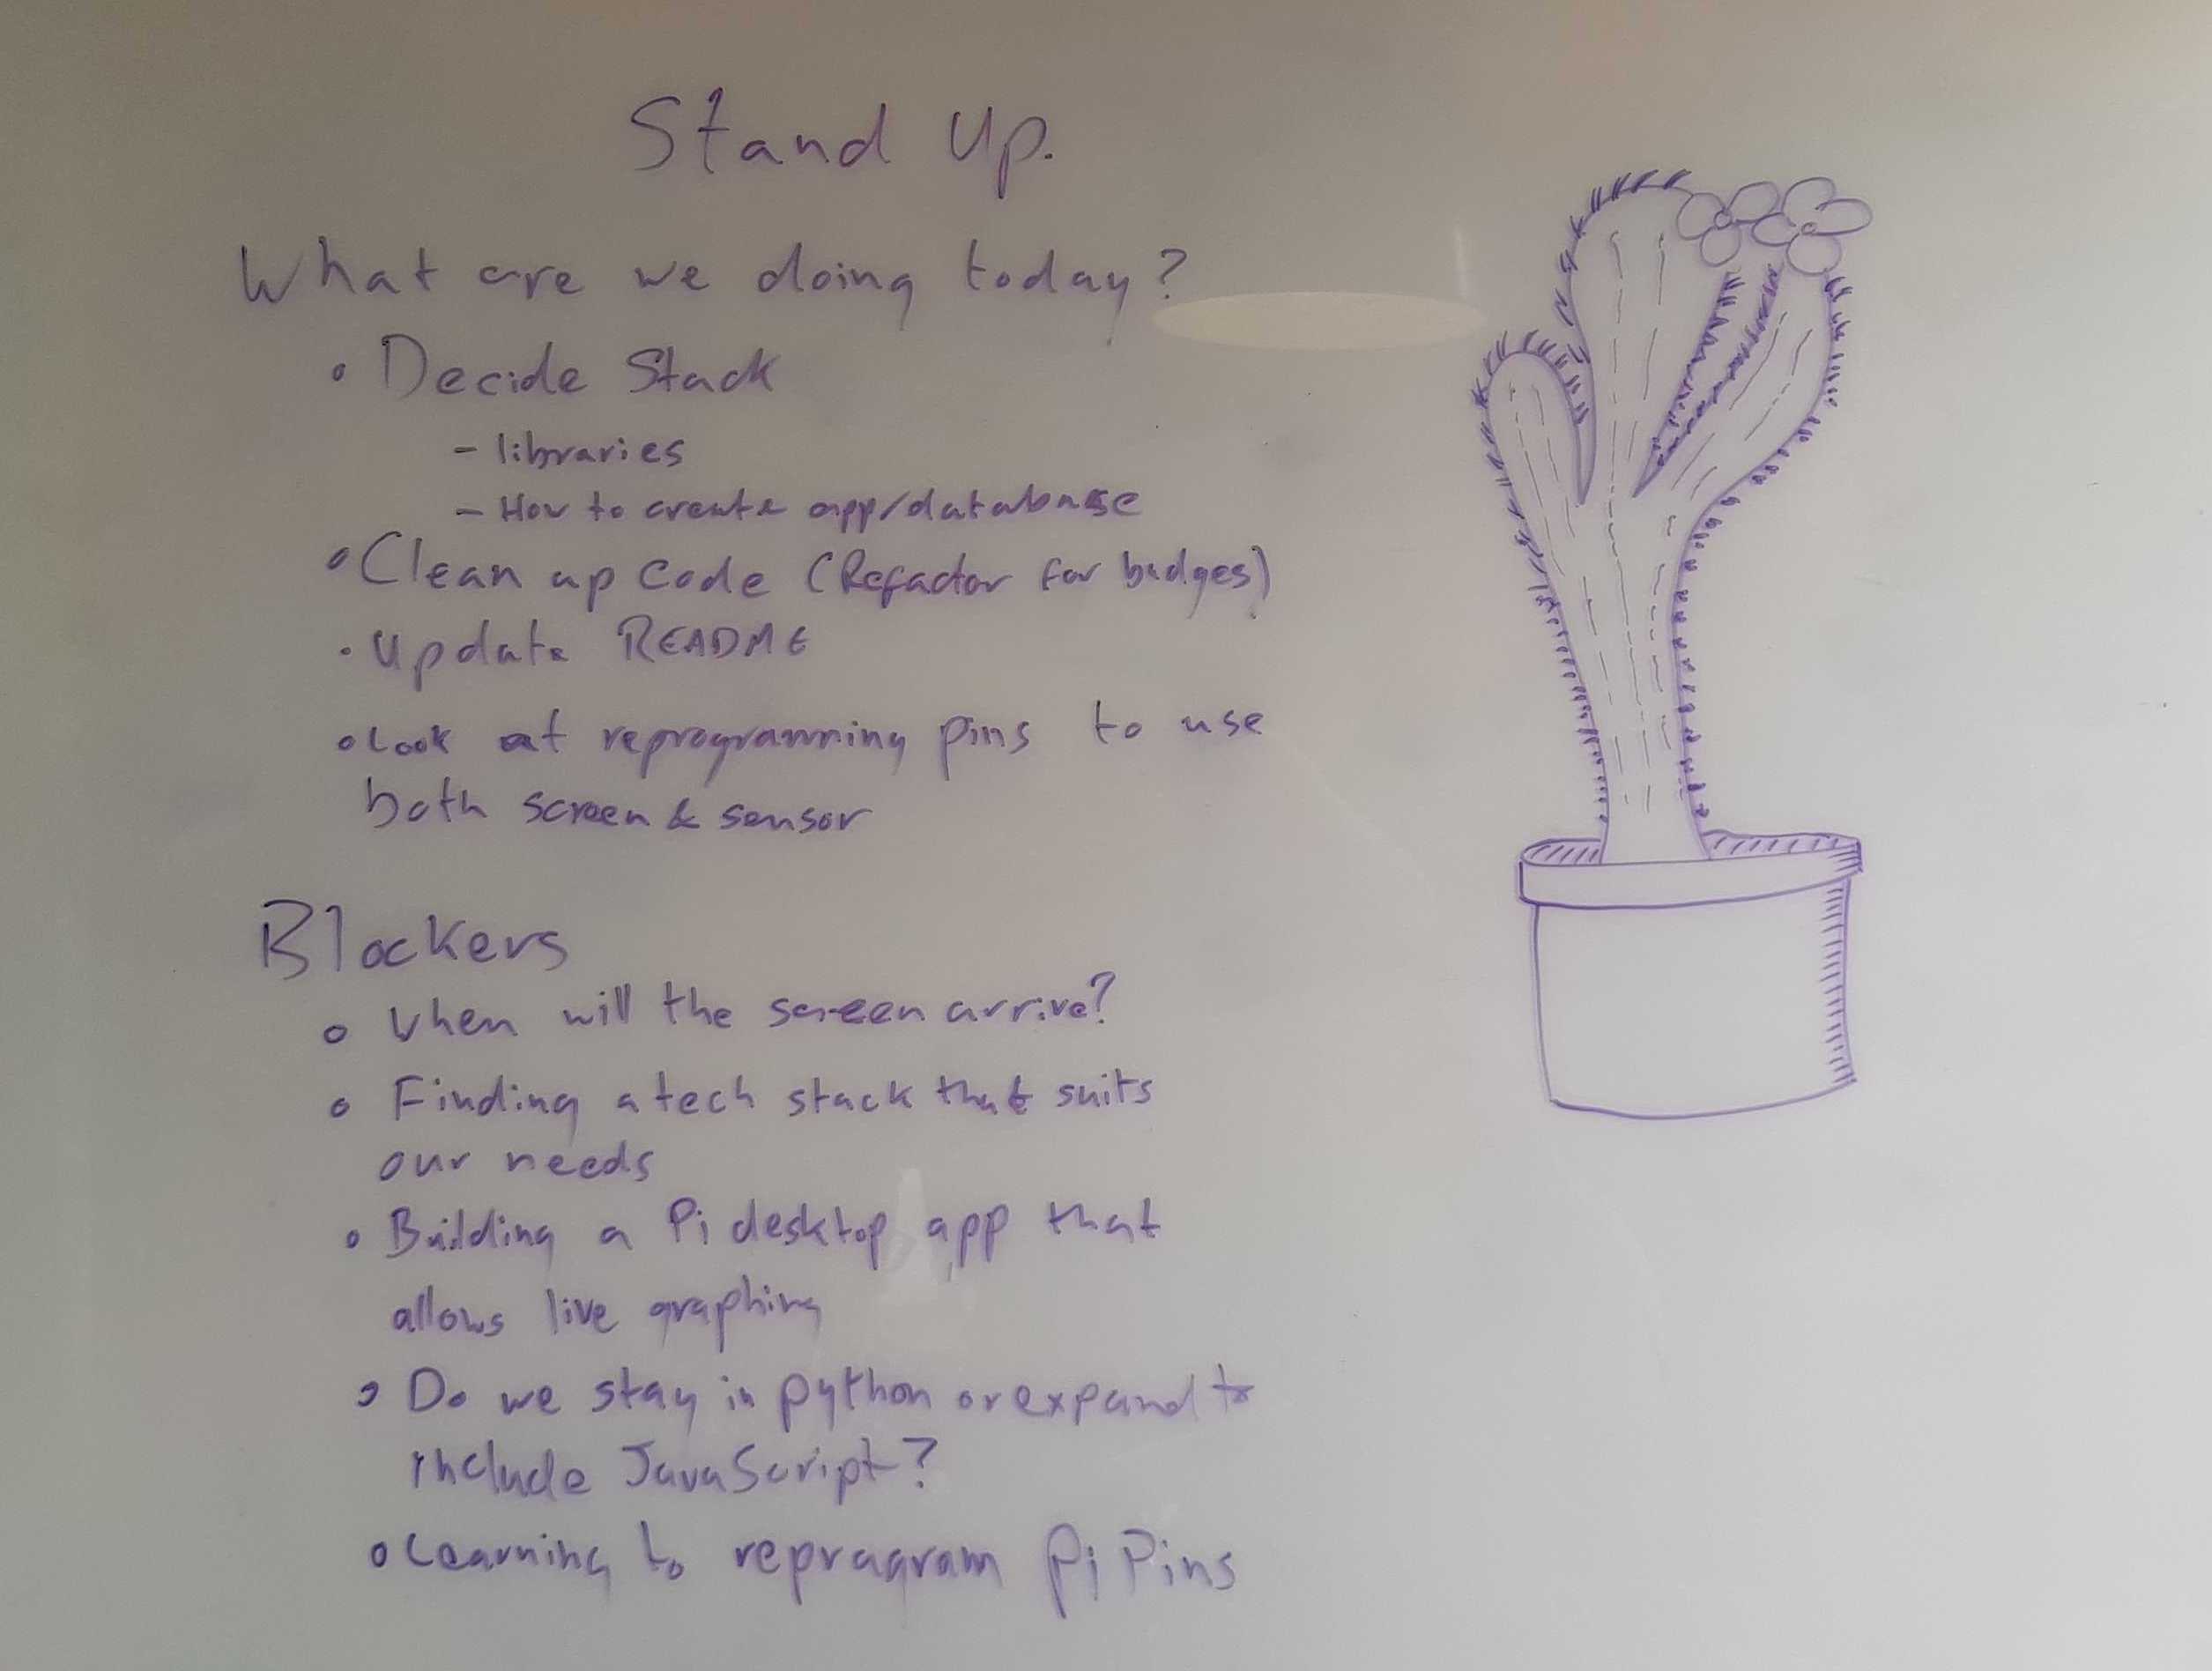 Stand Up.
What are we doing today?
• Decide Stack
- libraries
- How to create app/database
• Clean up Code (Refactor for badges)
• Update README
• Look at reprogramming pins to use
both screen & sensor
Blockers
• When will the screen arrive?
• Finding a tech stack that suits
our needs
• Building a Pi desktop app that
allows live graphing
• Do we stay in python or expand to
include JavaScript?
• Learning to reprogram Pi Pins